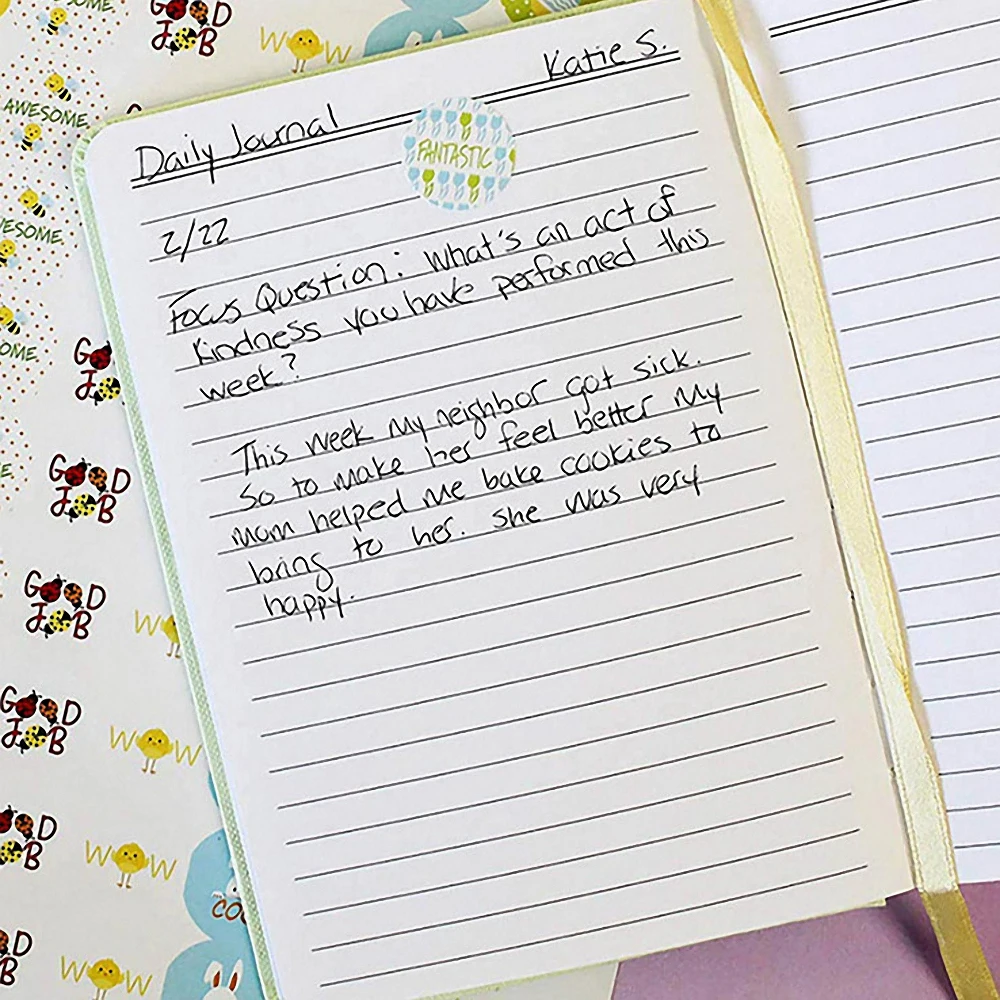 GOOD
JOB
WOW
AWESOME
AWESOME
Katie S.
Daily Journal
FANTASTIC
2/22
Focus Question: What's an act of
kindness you have performed this
week?
This week my neighbor got sick.
So to make her feel better my
mom helped me bake cookies to
bring to her. She was very
happy.
GOOD
JOB
GOOD
JOB
GOOD
JOB
WOW
GOOD
JOB
WOW
WOW
WOW